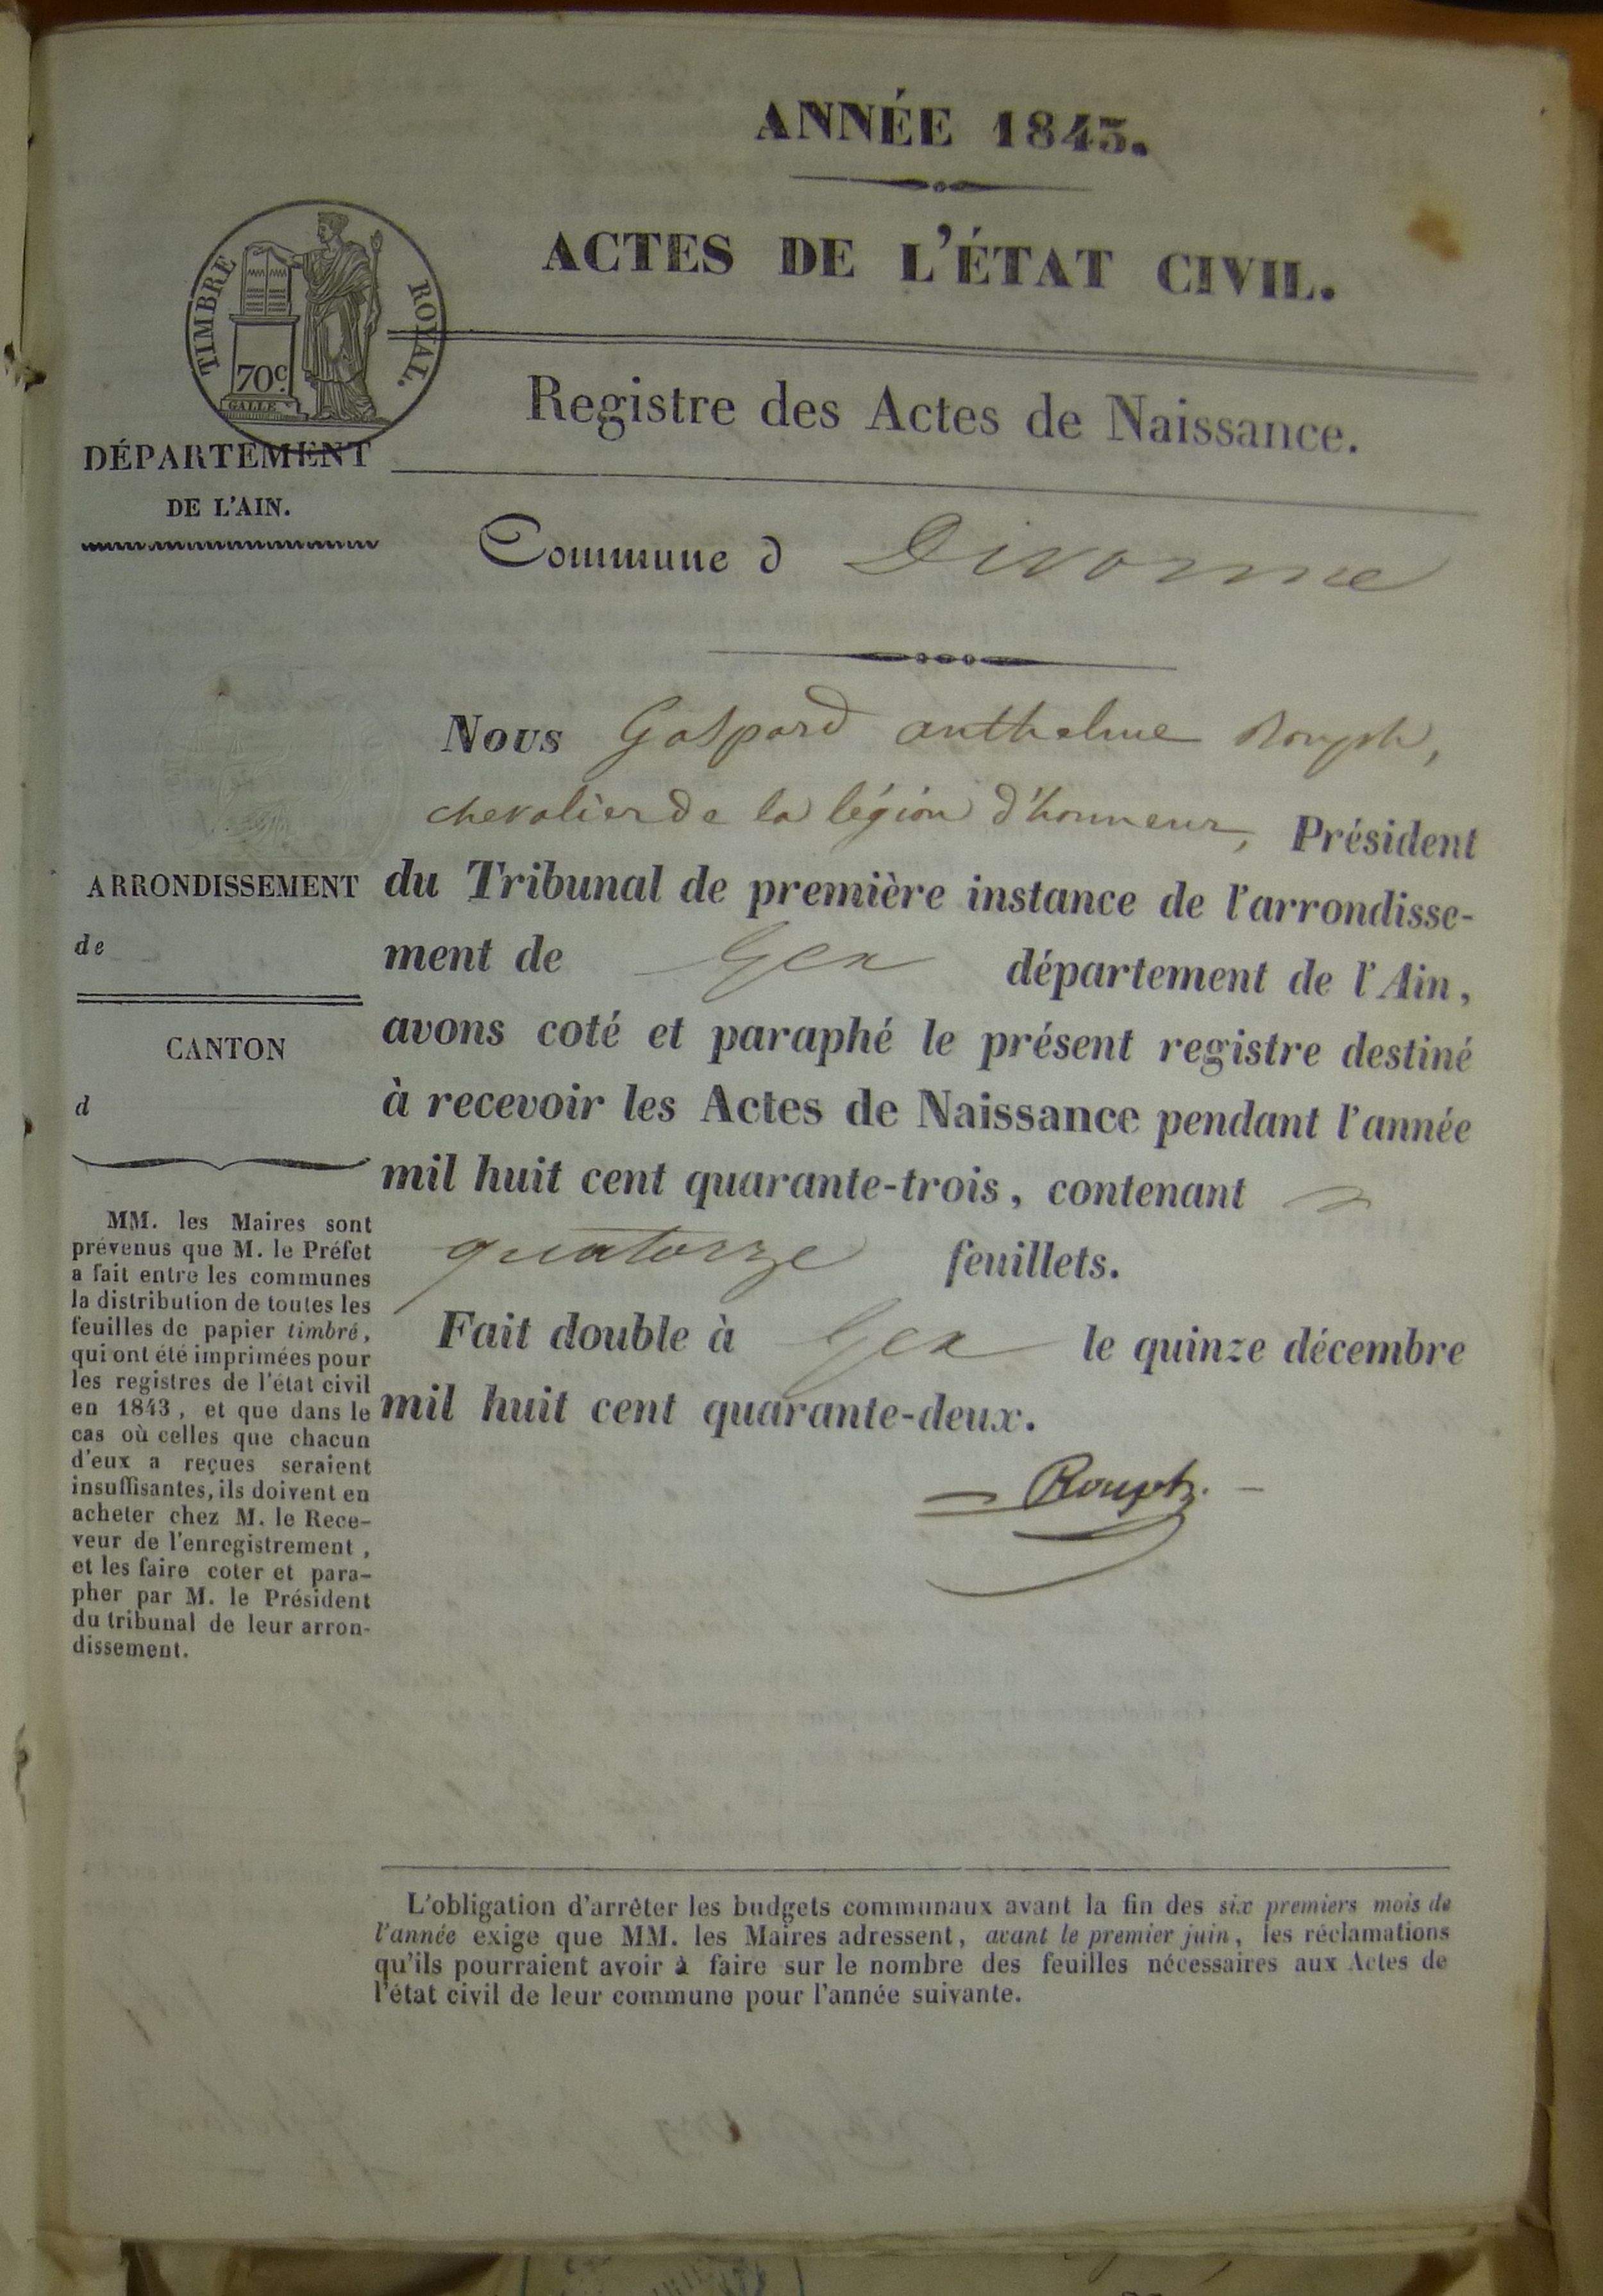 ANNÉE 1843.
ACTES DE L'ÉTAT CIVIL.
TIMBRE ROYAL.
70c.
GALLE
Registre des Actes de Naissance.
DÉPARTEMENT
DE L'AIN.
Commune d Divonne
Nous Gaspard anthelme Rouph,
chevalier de la légion d'honneur, Président
du Tribunal de première instance de l'arrondisse-
ment de Gex département de l'Ain,
avons coté et paraphé le présent registre destiné
à recevoir les Actes de Naissance pendant l'année
mil huit cent quarante-trois, contenant
quatorze feuillets.
Fait double à Gex le quinze décembre
mil huit cent quarante-deux.
Rouph.
ARRONDISSEMENT
de
CANTON
d
MM. les Maires sont
prévenus que M. le Préfet
a fait entre les communes
la distribution de toutes les
feuilles de papier timbré,
qui ont été imprimées pour
les registres de l'état civil
en 1843, et que dans le
cas où celles que chacun
d'eux a reçues seraient
insuffisantes, ils doivent en
acheter chez M. le Rece-
veur de l'enregistrement,
et les faire coter et para-
pher par M. le Président
du tribunal de leur arron-
dissement.
L'obligation d'arrêter les budgets communaux avant la fin des six premiers mois de
l'année exige que MM. les Maires adressent, avant le premier juin, les réclamations
qu'ils pourraient avoir à faire sur le nombre des feuilles nécessaires aux Actes de
l'état civil de leur commune pour l'année suivante.